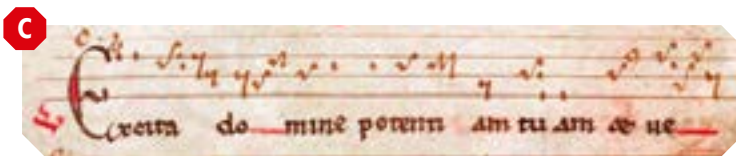 C
Excita do mine potenti am tu am & ue